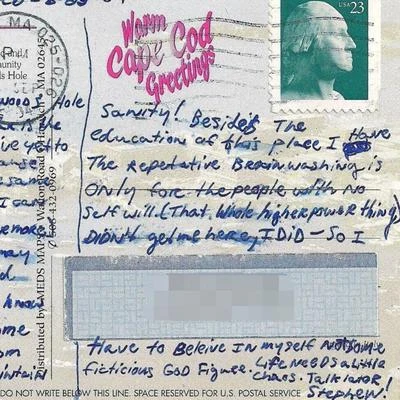 MA 025-026
USA 23
Warm
Cape Cod
Greetings
Hole
ive yet to
same
I can
may
d
know
ome
om
Distributed by MEDS MAPS
MA 02645
508-432-0969
Sanity! Besides The
education of this place I Have
The Repetative Brainwashing is
Only for the people with No
Self will (That, Whole higher power thing)
DIDN't get me here, I DiD - So I
Have to Beleive In myself Not some
ficticious GOD Figure. Life Needs a little
chaos. Talk later
Stephen!
DO NOT WRITE BELOW THIS LINE. SPACE RESERVED FOR U.S. POSTAL SERVICE